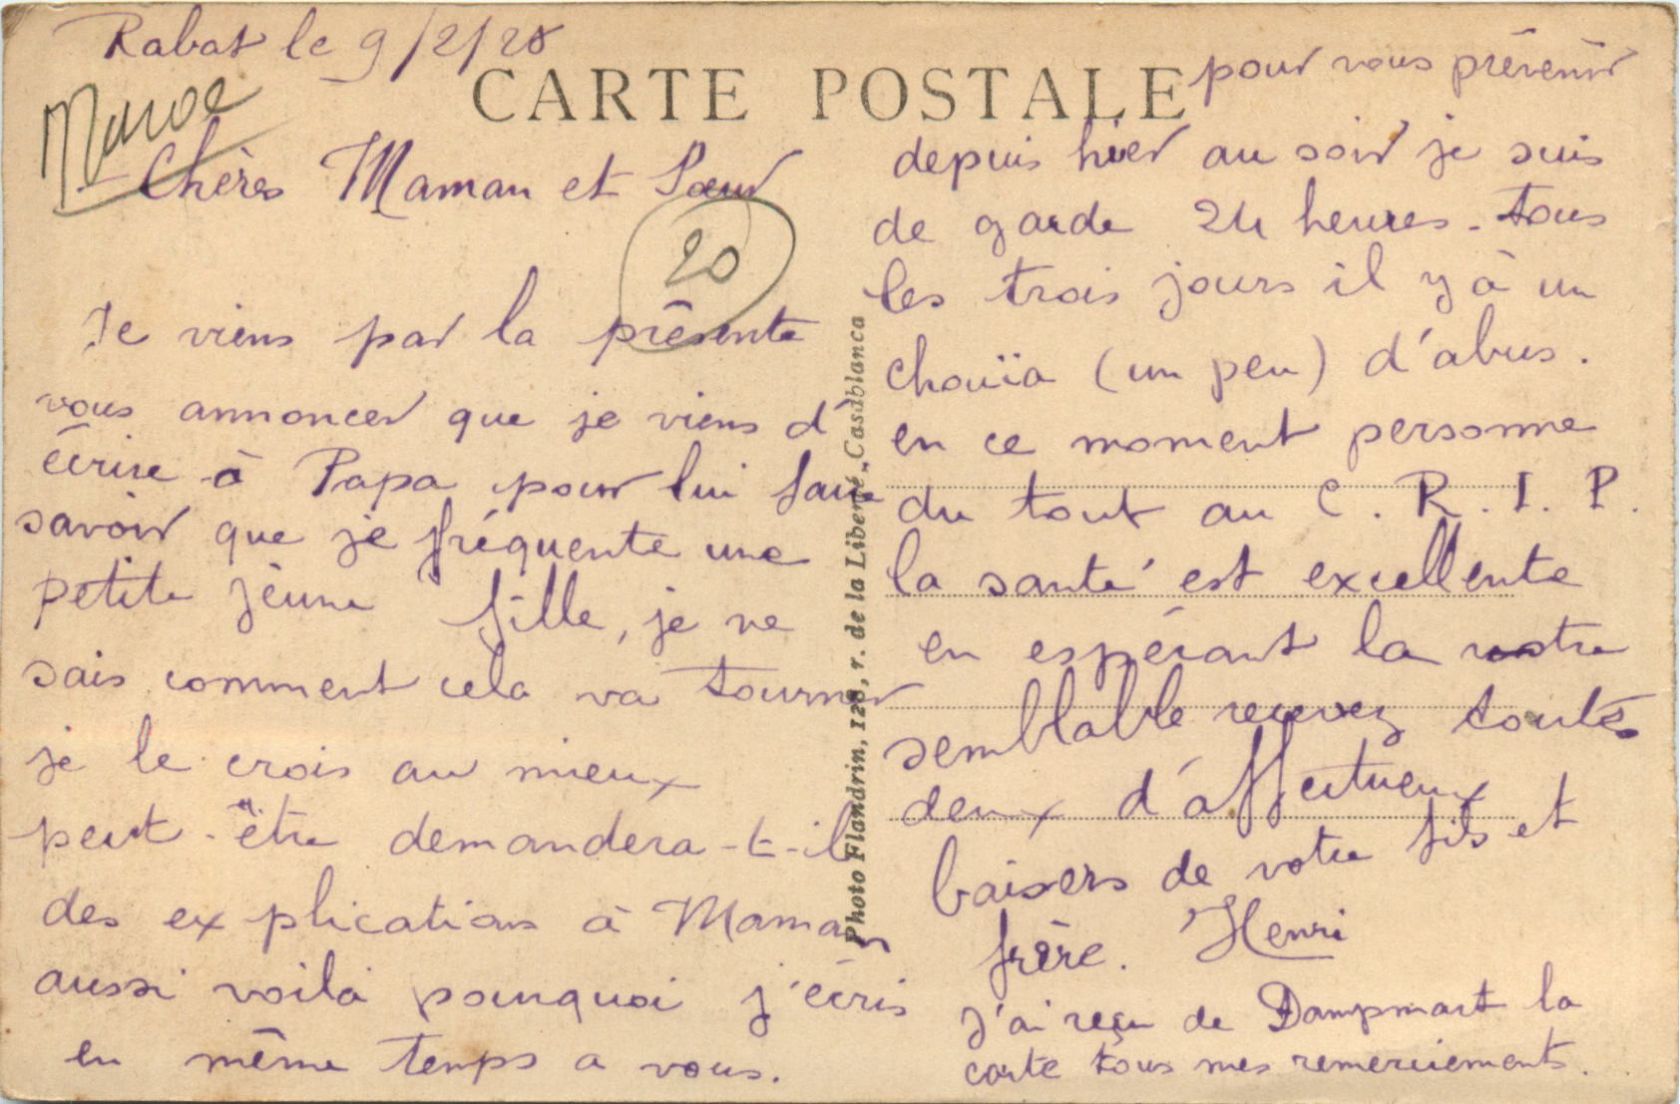 Rabat le 9/2/28
Maroc
CARTE POSTALE
Chères Maman et Sœur
20
Je viens par la présente
vous annoncer que je viens d'
écrire à Papa pour lui faire
savoir que je fréquente une
petite jeune fille, je ne
sais comment cela va tourner
je le crois au mieux
peut-être demandera-t-il
des explications à Maman
aussi voilà pourquoi j'écris
en même temps a vous.
Photo Flandrin, 128, r. de la Liberté, Casablanca
pour vous prévenir
depuis hier au soir je suis
de garde 24 heures. tous
les trois jours il y à un
chouïa (un peu) d'abus.
en ce moment personne
du tout au C. R. I. P.
la santé est excellente
en espérant la votre
semblable recevez toutes
deux d'affectueux
baisers de votre fils et
frère. Henri
J'ai reçu de Dampmart la
carte tous mes remerciements.